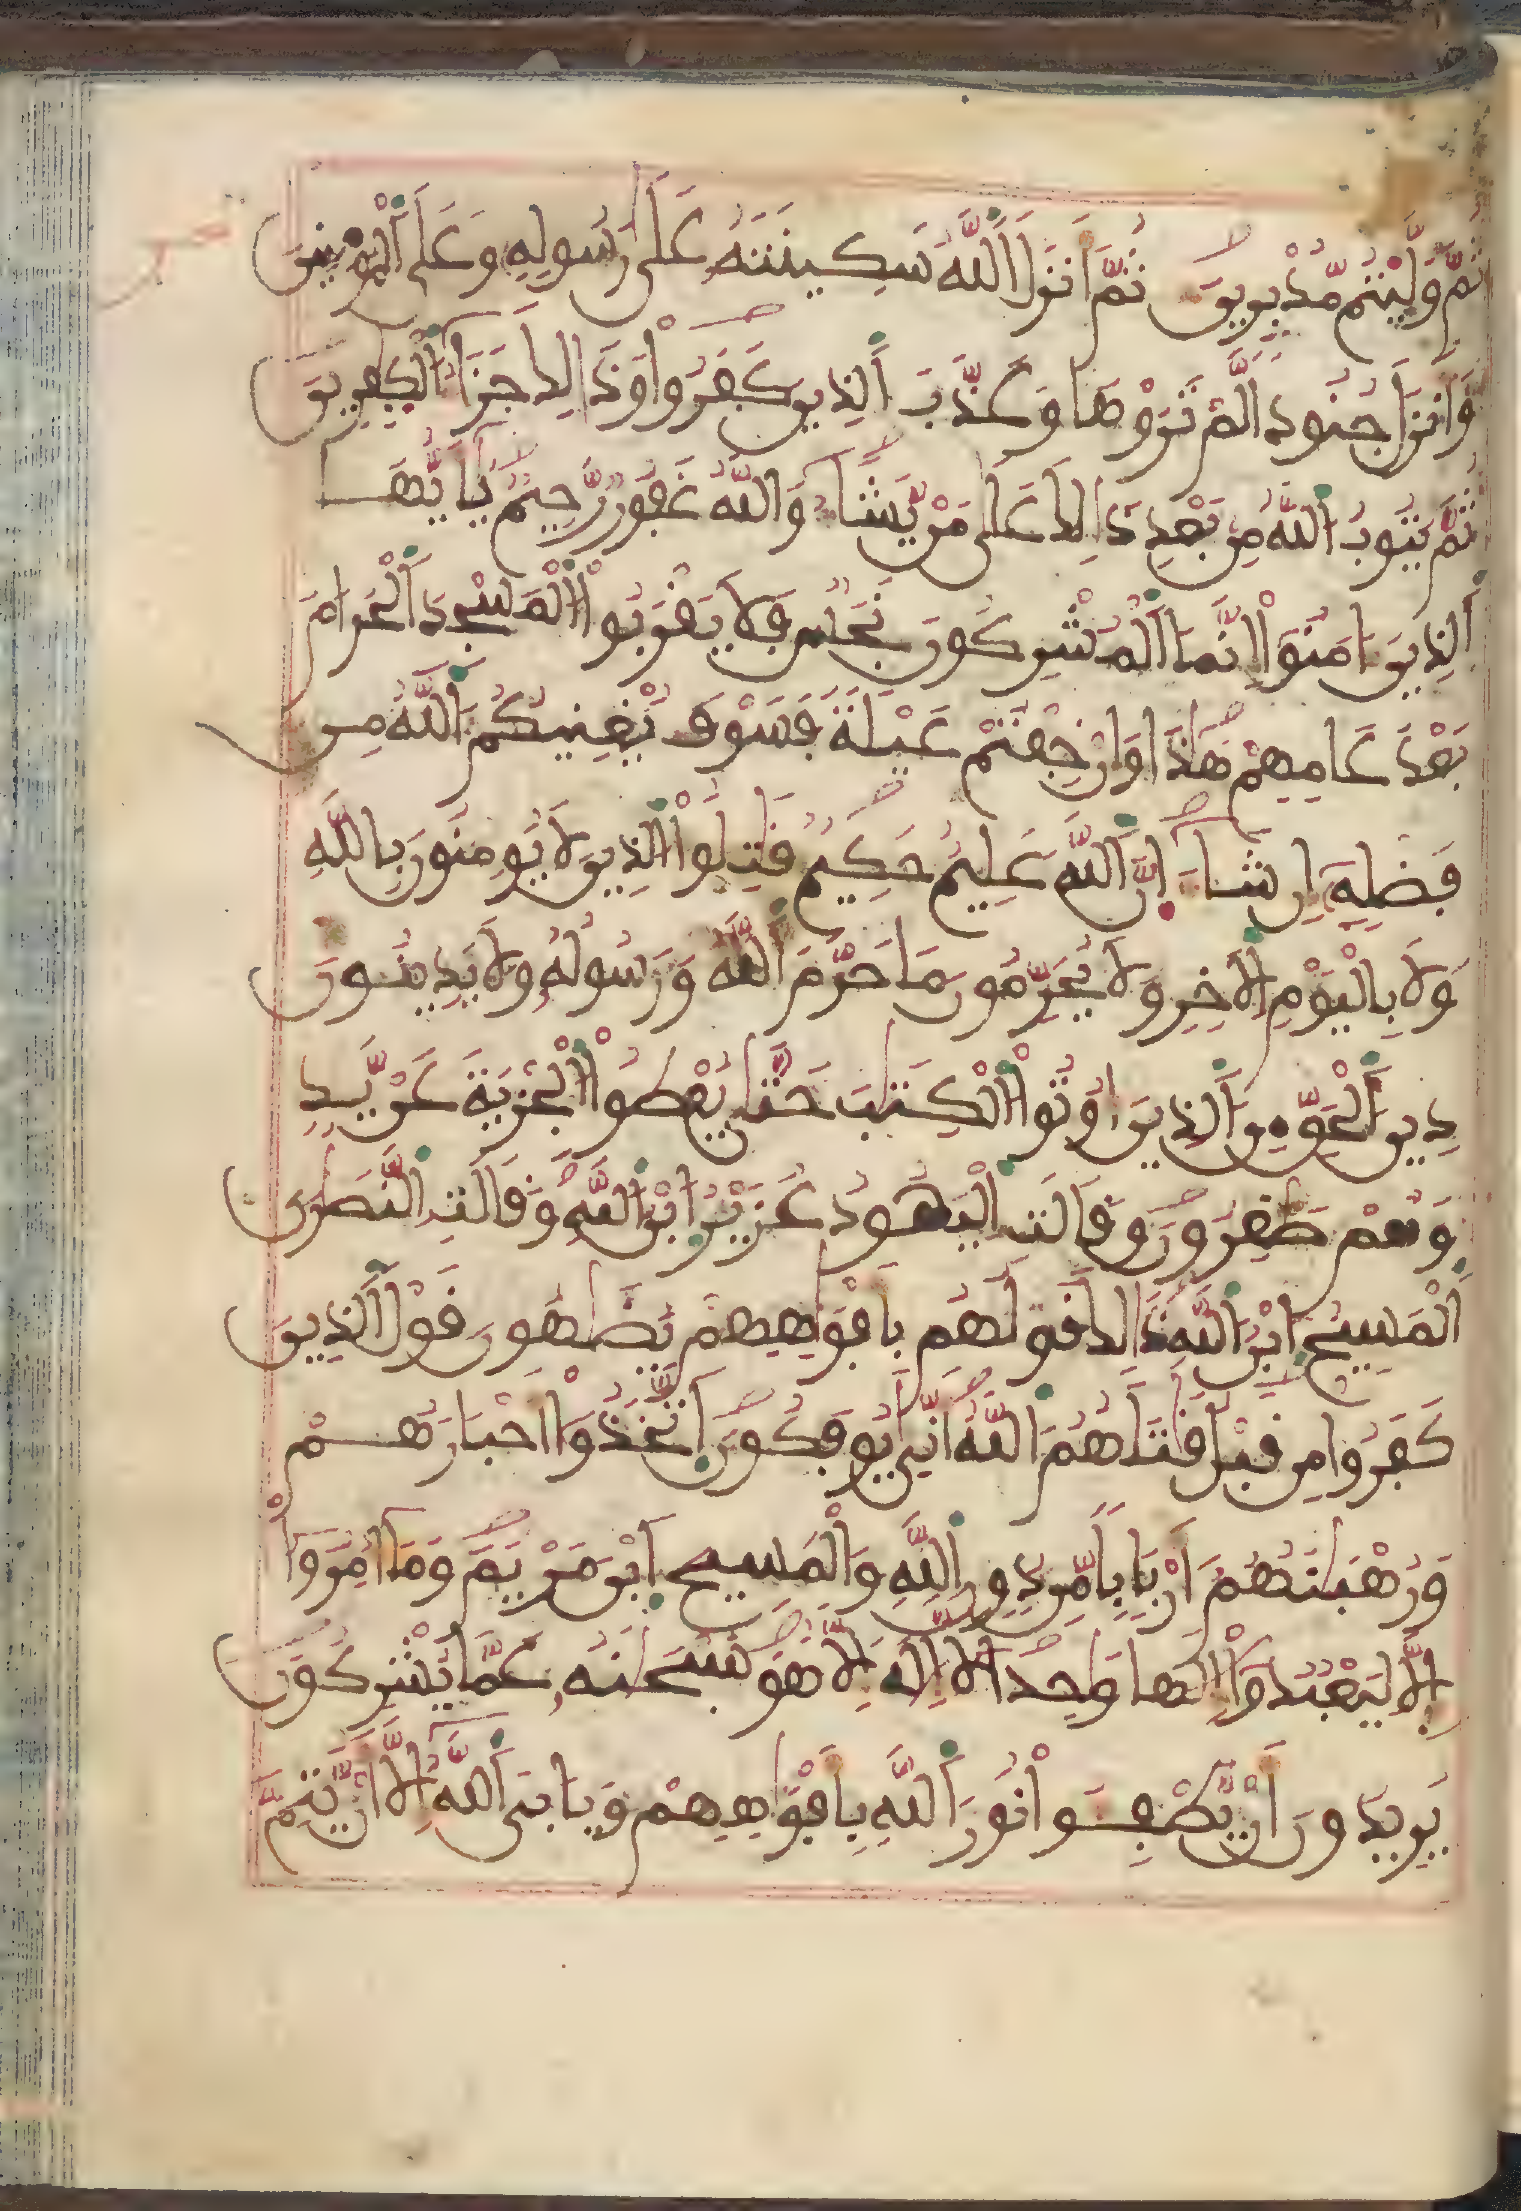 ثُمَّ وَلَّيْتُم مُّدْبِرِينَ ثُمَّ أَنزَلَ اَللَّهُ سَكِينَتَهُ عَلَىٰ رَسُولِهِ وَعَلَى اَلْمُومِنِينَ
وَأَنزَلَ جُنُودًا لَّمْ تَرَوْهَا وَعَذَّبَ اَلذِينَ كَفَرُواْ وَذَٰلِكَ جَزَآءُ اُلْكٰفِرِينَ
ثُمَّ يَتُوبُ اُللَّهُ مِن بَعْدِ ذَٰلِكَ عَلَىٰ مَنْ يَّشَآءُ وَاللَّهُ غَفُورٌ رَّحِيمٌ يَٰٓأَيُّهَا
اَلذِينَ ءَامَنُوٓاْ إِنَّمَا اَلْمُشْرِكُونَ نَجَسٌ فَلَا يَقْرَبُواْ اُلْمَسْجِدَ اَلْحَرَامَ
بَعْدَ عَامِهِمْ هَٰذَا وَإِنْ خِفْتُمْ عَيْلَةً فَسَوْفَ يُغْنِيكُمُ اُللَّهُ مِن
فَضْلِهِۦٓ إِن شَآءَ انَّ اَللَّهَ عَلِيمٌ حَكِيمٌ قَٰتِلُواْ اُلذِينَ لَا يُومِنُونَ بِاللَّهِ
وَلَا بِالْيَوْمِ اِلَاخِرِ وَلَا يُحَرِّمُونَ مَا حَرَّمَ اَللَّهُ وَرَسُولُهُ وَلَا يَدِينُونَ
دِينَ اَلْحَقِّ مِنَ اَلذِينَ أُوتُواْ اُلْكِتَٰبَ حَتَّىٰ يُعْطُواْ اُلْجِزْيَةَ عَنْ يَّدٍ
وَهُمْ صَٰغِرُونَ وَقَالَتِ اِلْيَهُودُ عُزَيْرُ ابْنُ اُللَّهِ وَقَالَتِ اِلنَّصَٰرَى
اَلْمَسِيحُ ابْنُ اُللَّهِ ذَٰلِكَ قَوْلُهُم بِأَفْوَٰهِهِمْ يُضَٰهُونَ قَوْلَ اَلذِينَ
كَفَرُواْ مِن قَبْلُ قَٰتَلَهُمُ اُللَّهُ أَنَّىٰ يُوفَكُونَ اَتَّخَذُوٓاْ أَحْبَارَهُمْ
وَرُهْبَٰنَهُمُۥٓ أَرْبَابًا مِّن دُونِ اِللَّهِ وَالْمَسِيحَ اَبْنَ مَرْيَمَ وَمَآ أُمِرُوٓاْ
إِلَّا لِيَعْبُدُوٓاْ إِلَٰهًا وَٰحِدًا لَّآ إِلَٰهَ إِلَّا هُوَ سُبْحَٰنَهُ عَمَّا يُشْرِكُونَ
يُرِيدُونَ أَنْ يُّطْفِـُٔواْ نُورَ اَللَّهِ بِأَفْوَٰهِهِمْ وَيَابَى اَللَّهُ إِلَّآ أَنْ يُّتِمَّ